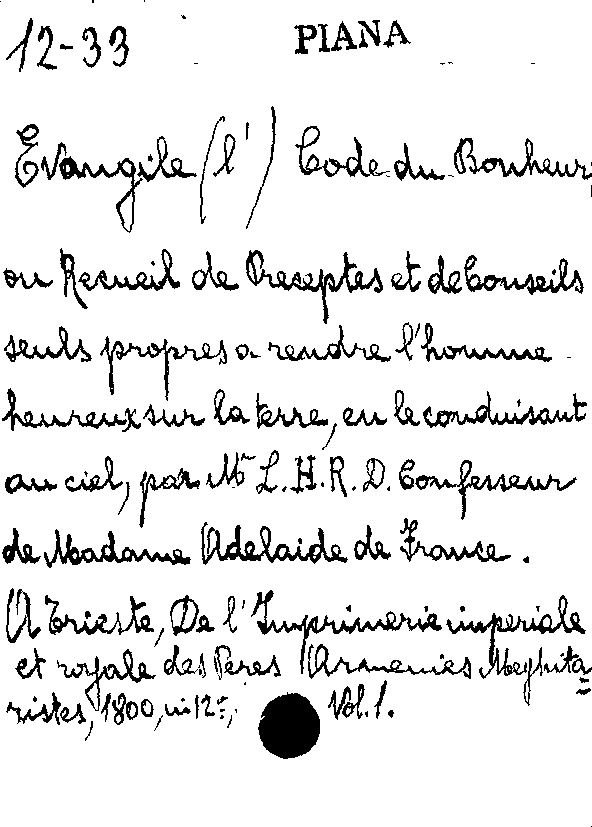 12-33 PIANA
Evangile (l') Code du Bonheur,
ou Recueil de Preseptes et de Conseils
seuls propres a rendre l'homme
heureux sur la terre, en le conduisant
au ciel, par Mr L. H. R. D. Confesseur
de Madame Adelaide de France.
A Trieste, De l'Imprimerie imperiale
et royale des Peres Armenies Meghita=
ristes, 1800, in 12º, Vol. 1.